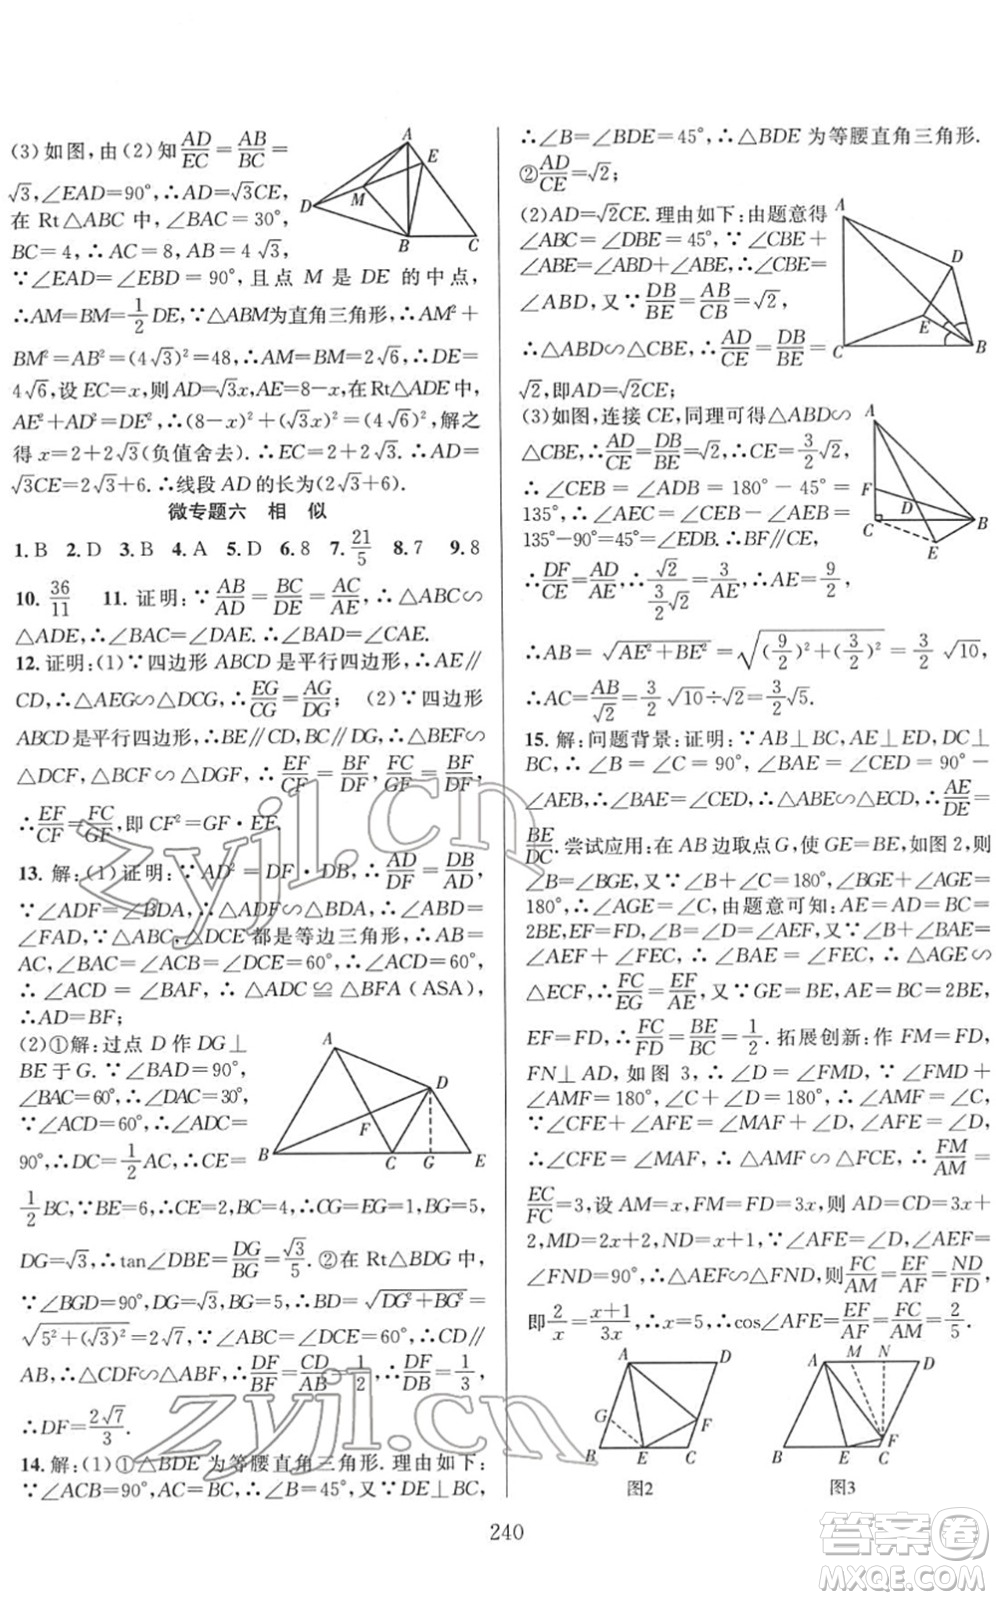 (3)如图,由(2)知AD/EC=AB/BC=
√3,∠EAD=90°,∴AD=√3CE,
在 Rt△ABC 中,∠BAC=30°,
BC=4,∴AC=8,AB=4√3,
∵∠EAD=∠EBD=90°,且点 M 是 DE 的中点,
∴AM=BM=1/2 DE,∵△ABM为直角三角形,∴AM²+
BM²=AB²=(4√3)²=48,∴AM=BM=2√6,∴DE=
4√6,设 EC=x,则 AD=√3x,AE=8-x,在Rt△ADE中,
AE²+AD²=DE²,∴(8-x)²+(√3x)²=(4√6)²,解之
得 x=2+2√3(负值舍去).∴EC=2+2√3,∴AD=
√3CE=2√3+6.∴线段 AD 的长为(2√3+6).
微专题六 相 似
1.B 2.D 3.B 4.A 5.D 6.8 7.21/5 8.7 9.8
10.36/11 11.证明:∵AB/AD=BC/DE=AC/AE,∴△ABC∽
△ADE,∴∠BAC=∠DAE.∴∠BAD=∠CAE.
12.证明:(1)∵四边形 ABCD 是平行四边形,∴AE∥
CD,∴△AEG∽△DCG,∴EG/CG=AG/DG; (2)∵四边形
ABCD是平行四边形,∴BE∥CD,BC∥DF,∴△BEF∽
△DCF,△BCF∽△DGF,∴EF/CF=BF/DF,FC/GF=BF/DF,
∴EF/CF=FC/GF,即 CF²=GF·EF.
13.解:(1)证明:∵AD²=DF·DB,∴AD/DF=DB/AD,
∵∠ADF=∠BDA,∴△ADF∽△BDA,∴∠ABD=
∠FAD,∵△ABC,△DCE都是等边三角形,∴AB=
AC,∠BAC=∠ACB=∠DCE=60°,∴∠ACD=60°,
∴∠ACD=∠BAF,∴△ADC≌△BFA(ASA),
∴AD=BF;
(2)①解:过点 D 作 DG⊥
BE于G.∵∠BAD=90°,
∠BAC=60°,∴∠DAC=30°,
∵∠ACD=60°,∴∠ADC=
90°,∴DC=1/2 AC,∴CE=
1/2 BC,∵BE=6,∴CE=2,BC=4,∴CG=EG=1,BG=5,
DG=√3,∴tan∠DBE=DG/BG=√3/5.②在 Rt△BDG 中,
∵∠BGD=90°,DG=√3,BG=5,∴BD=√(DG²+BG²)=
√(5²+(√3)²)=2√7,∵∠ABC=∠DCE=60°,∴CD∥
AB,∴△CDF∽△ABF,∴DF/BF=CD/AB=1/2,∴DF/DB=1/3,
∴DF=2√7/3.
14.解:(1)①△BDE 为等腰直角三角形.理由如下:
∵∠ACB=90°,AC=BC,∴∠B=45°,又∵DE⊥BC,
∴∠B=∠BDE=45°,∴△BDE 为等腰直角三角形.
②AD/CE=√2;
(2)AD=√2CE.理由如下:由题意得
∠ABC=∠DBE=45°,∵∠CBE+
∠ABE=∠ABD+∠ABE,∴∠CBE=
∠ABD,又∵DB/BE=AB/CB=√2,
∴△ABD∽△CBE,∴AD/CE=DB/BE=
√2,即AD=√2CE;
(3)如图,连接 CE,同理可得△ABD∽
△CBE,∴AD/CE=DB/BE=√2,∴CE=3/2√2,
∴∠CEB=∠ADB=180°-45°=
135°,∴∠AEC=∠CEB-∠AEB=
135°-90°=45°=∠EDB,∴BF∥CE,
∴DF/CE=AD/AE,∴√2/(3/2√2)=3/AE,∴AE=9/2,
∴AB=√(AE²+BE²)=√((9/2)²+(3/2)²)=3/2√10,
∴AC=AB/√2=3/2√10÷√2=3/2√5.
15.解:问题背景:证明:∵AB⊥BC,AE⊥ED,DC⊥
BC,∴∠B=∠C=90°,∠BAE=∠CED=90°-
∠AEB,∴∠BAE=∠CED,∴△ABE∽△ECD,∴AE/DE=
BE/DC.尝试应用:在 AB 边取点 G,使 GE=BE,如图 2,则
∠B=∠BGE,又∵∠B+∠C=180°,∠BGE+∠AGE=
180°,∴∠AGE=∠C,由题意可知:AE=AD=BC=
2BE,EF=FD,∠AEF=∠D=∠B,又∵∠B+∠BAE=
∠AEF+∠FEC,∴∠BAE=∠FEC,∴△AGE∽
△ECF,∴FC/EG=EF/AE,又∵GE=BE,AE=BC=2BE,
EF=FD,∴FC/FD=BE/BC=1/2.拓展创新:作 FM=FD,
FN⊥AD,如图 3,∴∠D=∠FMD,∵∠FMD+
∠AMF=180°,∠C+∠D=180°,∴∠AMF=∠C,
∵∠CFE+∠AFE=∠MAF+∠D,∠AFE=∠D,
∴∠CFE=∠MAF,∴△AMF∽△FCE,∴FM/AM=
EC/FC=3,设 AM=x,FM=FD=3x,则 AD=CD=3x+
2,MD=2x+2,ND=x+1,∵∠AFE=∠D,∠AEF=
∠FND=90°,∴△AEF∽△FND,则FC/AM=EF/AF=ND/FD,
即2/x=(x+1)/3x,∴x=5,∴cos∠AFE=EF/AF=FC/AM=2/5.
A
E
M
D
B
C
A
D
E
C
B
A
F
D
C
B
E
A
D
F
B
C
G
E
A
D
G
F
B
E
C
图2
A
M
N
D
F
B
E
C
图3
240
zyjl.cn
zyjl.cn
答案卷
MXQE.COM